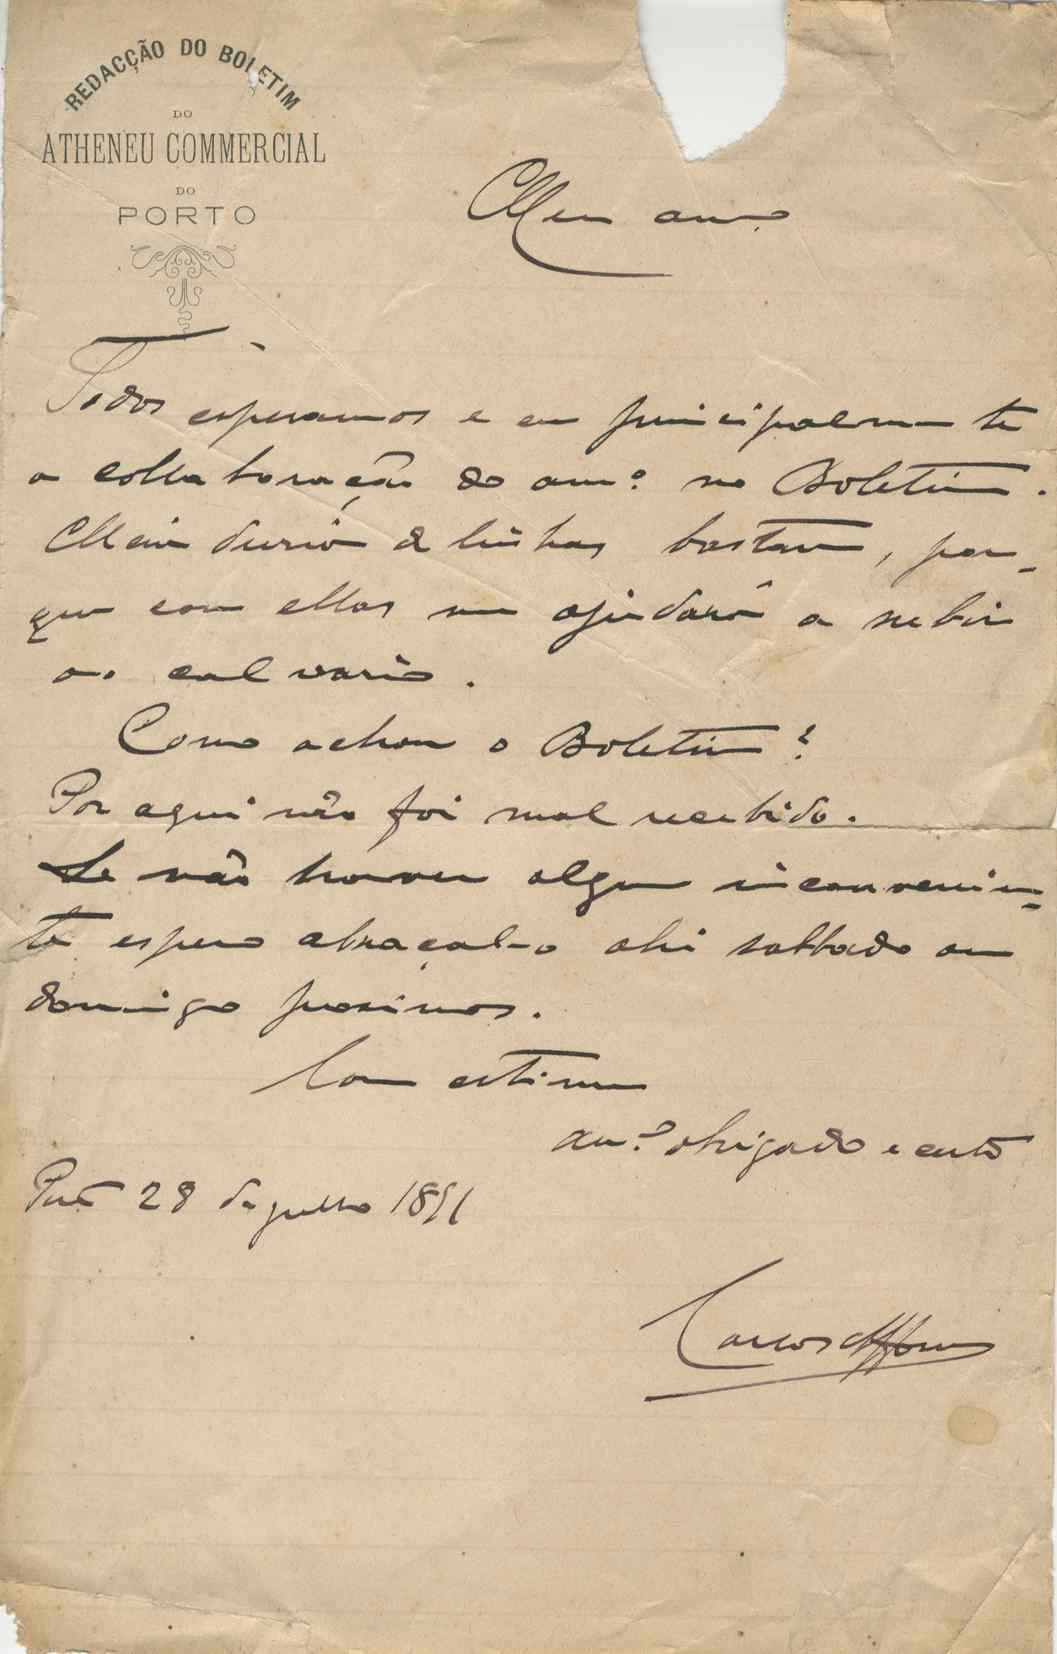 REDACÇÃO DO BOLETIM
DO
ATHENEU COMMERCIAL
DO
PORTO
Meu am.º
Todos esperamos e eu principalmente
a collaboração do am.º no Boletim.
Meia duzia de linhas bastam, por-
que com ellas me ajudará a subir
ao calvario.
Como achou o Boletim?
Por aqui não foi mal recebido.
Se não houver algum inconvenien-
te espero abraçal-o ahi sabbado ou
domingo proximos.
Com estima
am.º obrigado e certo
Porto 28 de julho 1891
Carlos Affonso